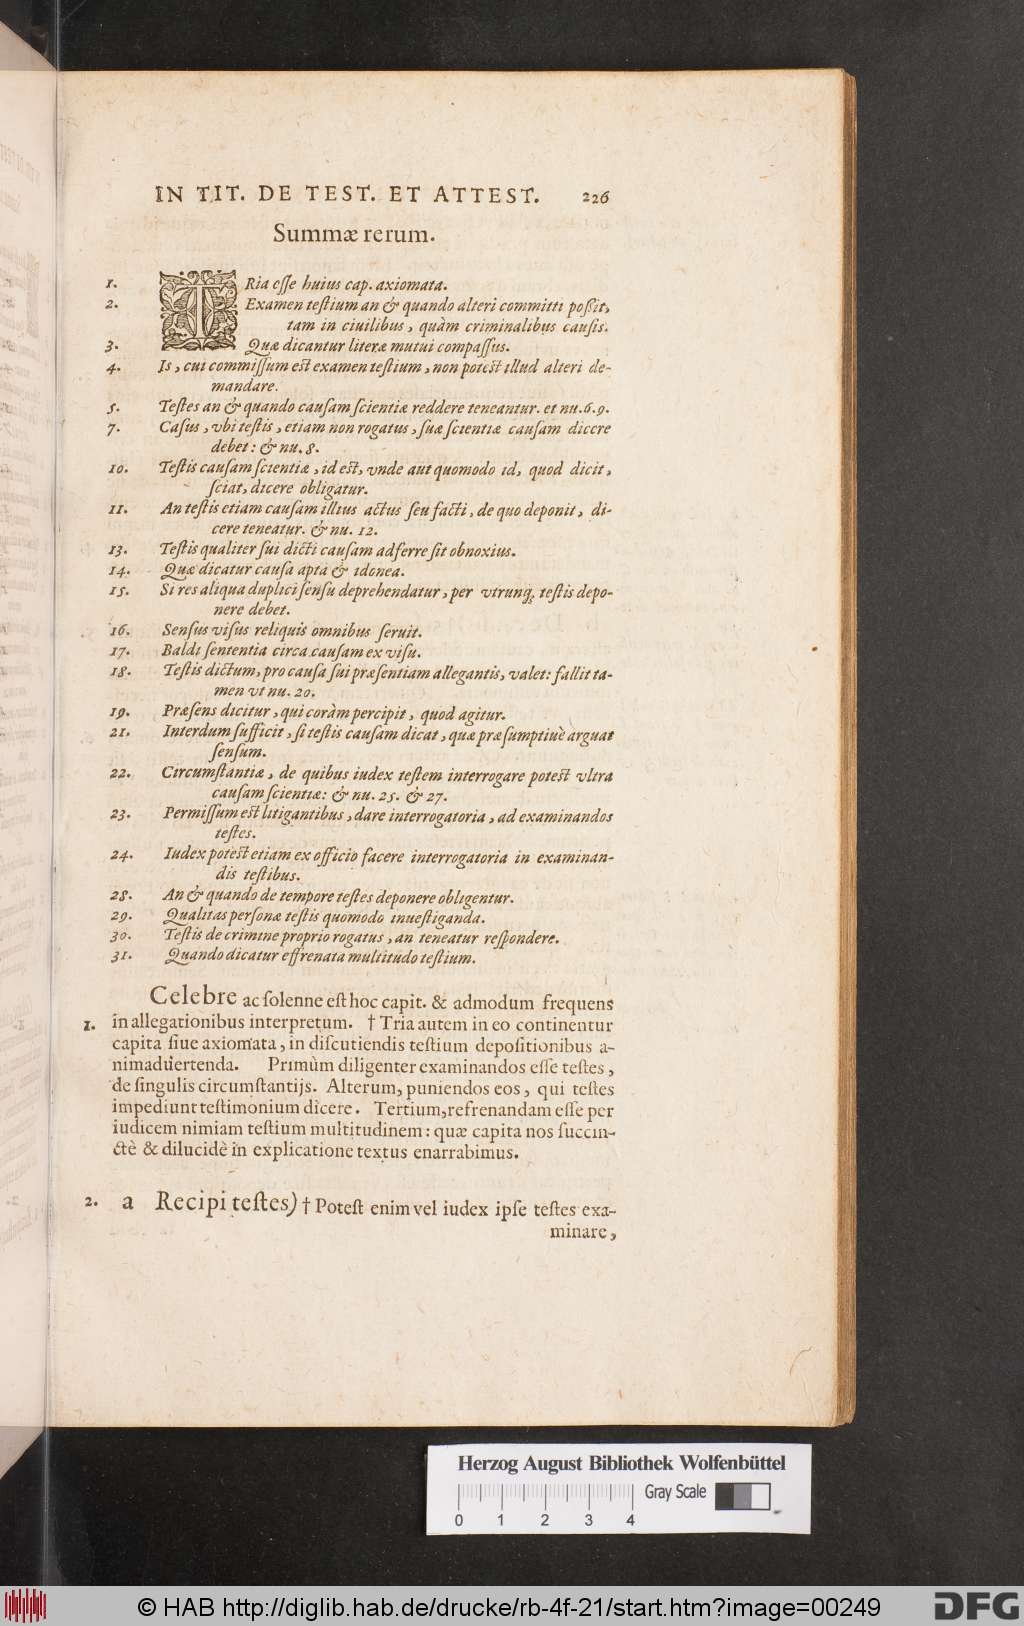 IN TIT. DE TEST. ET ATTEST. 226
Summæ rerum.
1. TRia eſſe huius cap. axiomata.
2. Examen teſtium an & quando alteri committi poſſit,
tam in ciuilibus, quàm criminalibus cauſis.
3. Quæ dicantur literæ mutui compaſſus.
4. Is, cui commiſſum eſt examen teſtium, non poteſt illud alteri de-
mandare.
5. Teſtes an & quando cauſam ſcientiæ reddere teneantur. et nu.6.9.
7. Caſus, vbi teſtis, etiam non rogatus, ſuæ ſcientiæ cauſam dicere
debet: & nu. 8.
10. Teſtis cauſam ſcientiæ, id eſt, vnde aut quomodo id, quod dicit,
ſciat, dicere obligatur.
11. An teſtis etiam cauſam illius actus ſeu facti, de quo deponit, di-
cere teneatur. & nu. 12.
13. Teſtis qualiter ſui dicti cauſam adferre ſit obnoxius.
14. Quæ dicatur cauſa apta & idonea.
15. Si res aliqua duplici ſenſu deprehendatur, per vtrunq; teſtis depo-
nere debet.
16. Senſus viſus reliquis omnibus ſeruit.
17. Baldi ſententia circa cauſam ex viſu.
18. Teſtis dictum, pro cauſa ſui præſentiam allegantis, valet: fallit ta-
men vt nu. 20.
19. Præſens dicitur, qui coràm percipit, quod agitur.
21. Interdum ſufficit, ſi teſtis cauſam dicat, quæ præſumptiuè arguat
ſenſum.
22. Circumſtantiæ, de quibus iudex teſtem interrogare poteſt vltra
cauſam ſcientiæ: & nu. 25. & 27.
23. Permiſſum eſt litigantibus, dare interrogatoria, ad examinandos
teſtes.
24. Iudex poteſt etiam ex officio facere interrogatoria in examinan-
dis teſtibus.
28. An & quando de tempore teſtes deponere obligentur.
29. Qualitas perſonæ teſtis quomodo inueſtiganda.
30. Teſtis de crimine proprio rogatus, an teneatur reſpondere.
31. Quando dicatur effrenata multitudo teſtium.
Celebre ac ſolenne eſt hoc capit. & admodum frequens
1. in allegationibus interpretum. † Tria autem in eo continentur
capita ſiue axiomata, in diſcutiendis teſtium depoſitionibus a-
nimaduertenda. Primùm diligenter examinandos eſſe teſtes,
de ſingulis circumſtantijs. Alterum, puniendos eos, qui teſtes
impediunt teſtimonium dicere. Tertium, refrenandam eſſe per
iudicem nimiam teſtium multitudinem: quæ capita nos ſuccin-
ctè & dilucidè in explicatione textus enarrabimus.
2. a Recipi teſtes) † Poteſt enim vel iudex ipſe teſtes exa-
minare,
Herzog August Bibliothek Wolfenbüttel
Gray Scale
0 1 2 3 4
© HAB http://diglib.hab.de/drucke/rb-4f-21/start.htm?image=00249
DFG